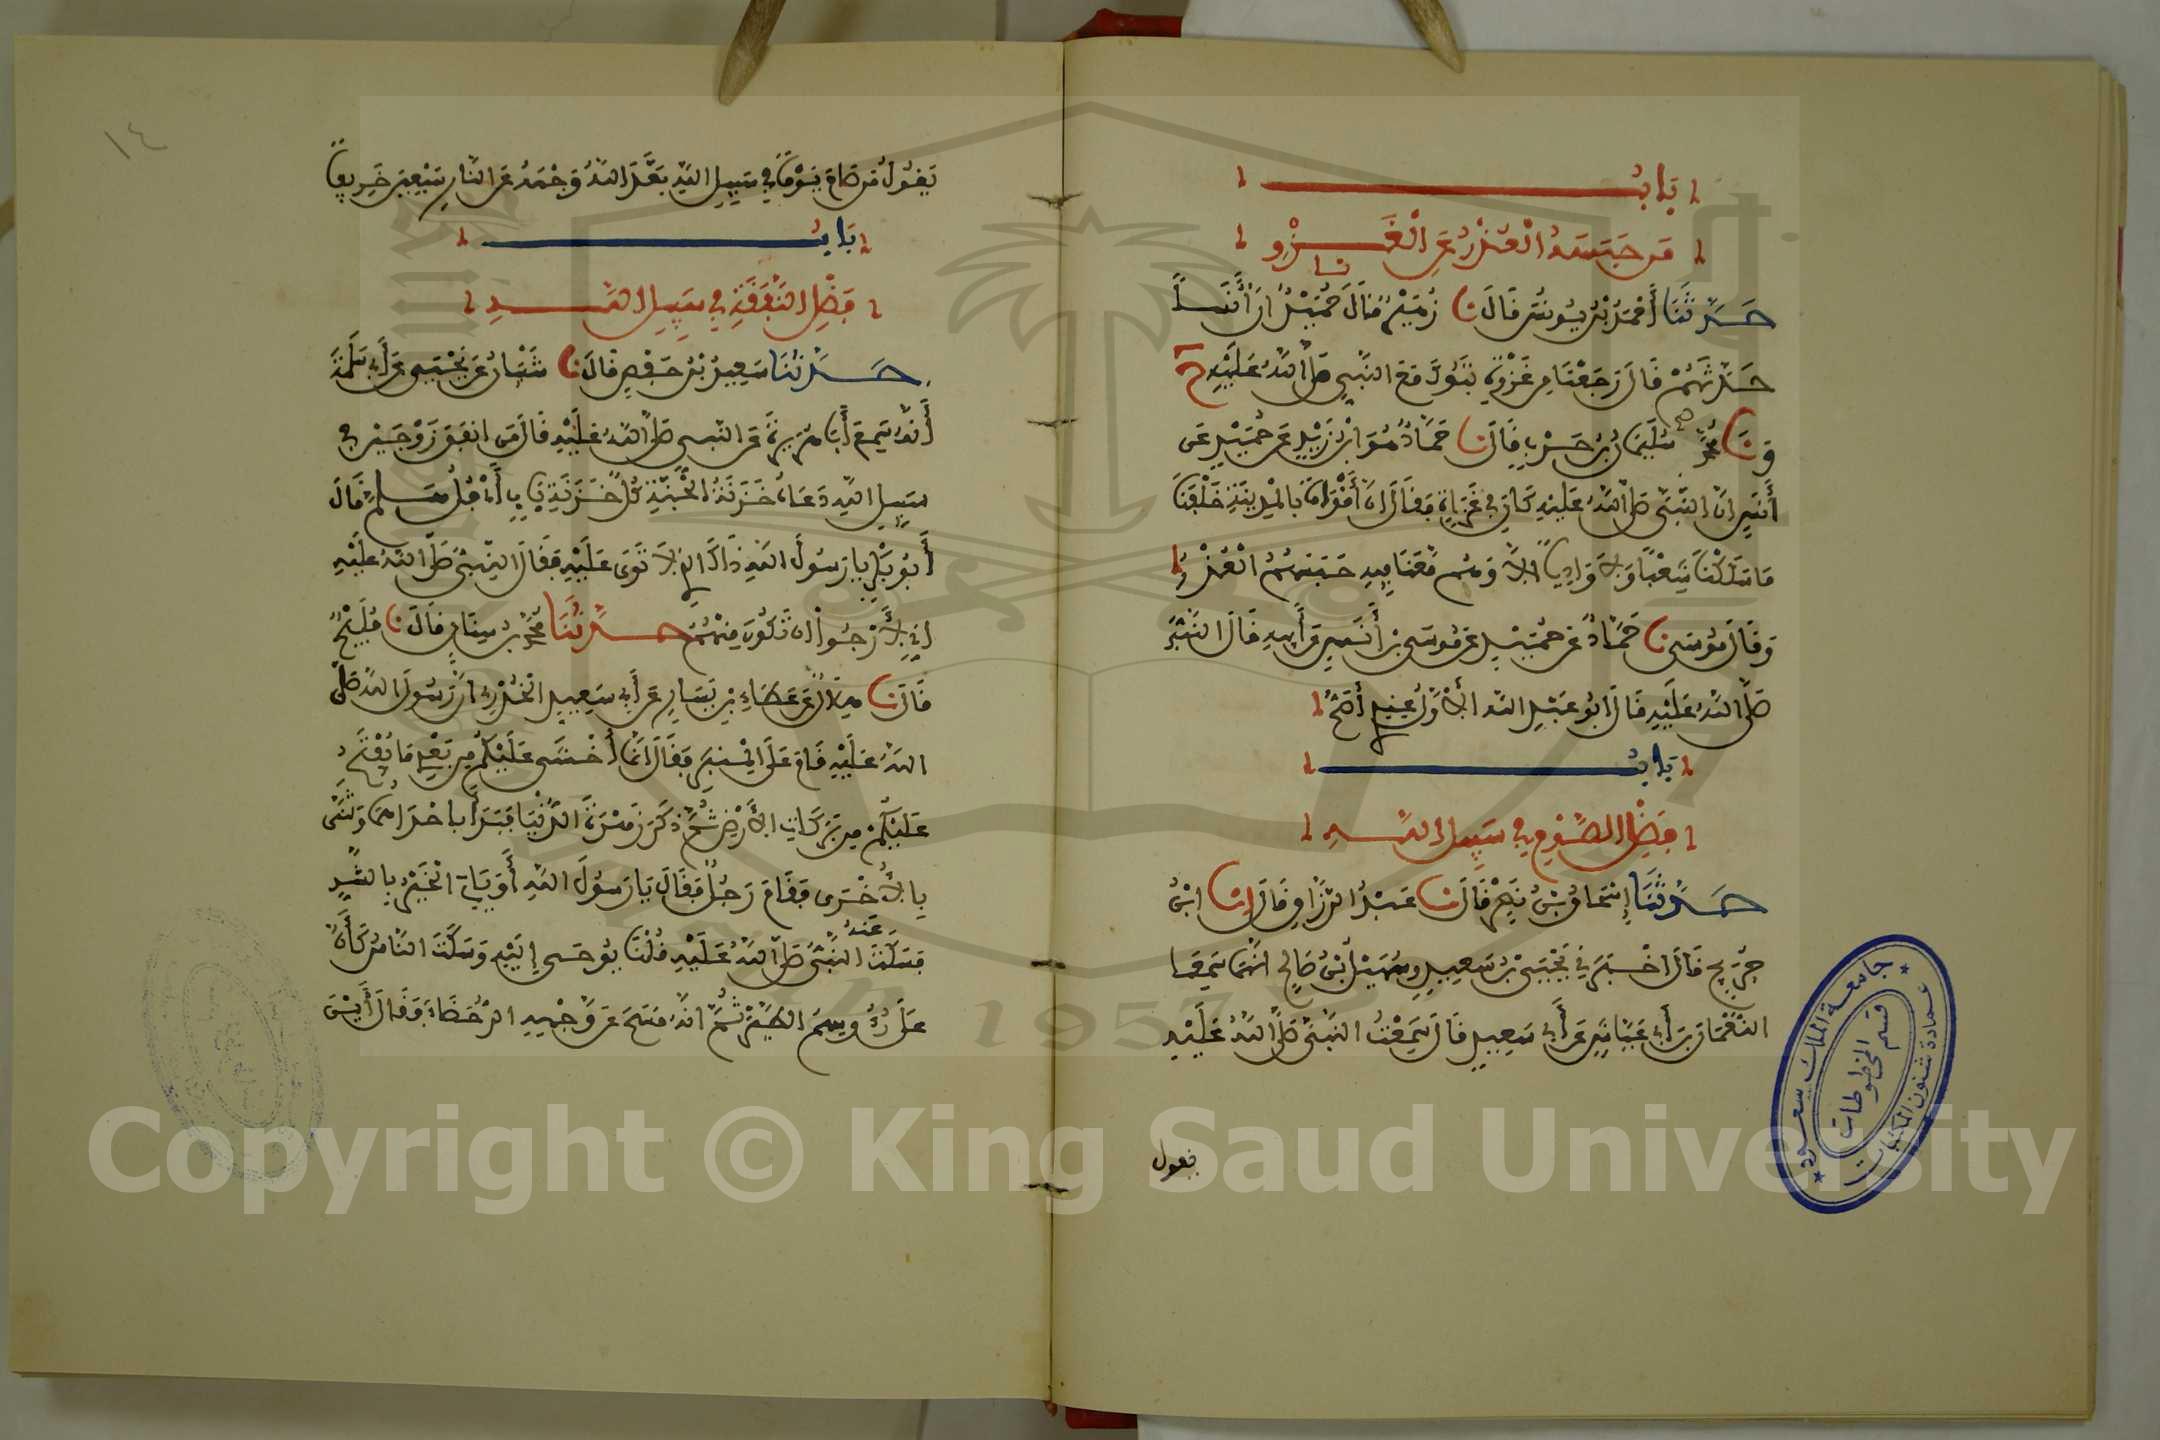 باب
من حبسه العذر عن الغزو
حدثنا أحمد بن يونس قال نا زهير قال نا حميد أن أنسا
حدثهم قال رجعنا من غزوة تبوك مع النبي صلى الله عليه ح
ونا سليمان بن حرب قال نا حماد هو ابن زيد عن حميد عن
أنس أن النبي صلى الله عليه كان في غزاة فقال إن أقواما بالمدينة خلفنا
ما سلكنا شعبا ولا واديا إلا وهم معنا فيه حبسهم العذر
وقال موسى نا حماد عن حميد عن موسى بن أنس عن أبيه قال النبي
صلى الله عليه قال أبو عبد الله الأول عندي أصح
باب
فضل الصوم في سبيل الله
حدثنا إسحاق بن نصر قال نا عبد الرزاق قال انا ابن
جريج قال أخبرني يحيى بن سعيد وسهيل بن صالح أنهما سمعا
النعمان بن أبي عياش عن أبي سعيد قال سمعت النبي صلى الله عليه
يقول
١٤
يقول من صام يوما في سبيل الله بعد الله وجهه عن النار سبعين خريفا
باب
فضل النفقة في سبيل الله
حدثنا سعيد بن حفص قال نا شيبان عن يحيى عن أبي سلمة
أنه سمع أبا هريرة عن النبي صلى الله عليه قال من انفق زوجين في
سبيل الله دعاه خزنة الجنة كل خزنة باب أي فل هلم قال
أبو بكر يا رسول الله ذاك الذي لا توى عليه فقال النبي صلى الله عليه
إني لأرجوا ان تكون منهم حدثنا محمد بن سنان قال نا فليح
قال نا هلال عن عطاء بن يسار عن أبي سعيد الخدري أن رسول الله صلى
الله عليه قام على المنبر فقال إنما أخشى عليكم من بعدي ما يفتح
عليكم من بركات الأرض ثم ذكر زهرة الدنيا فبدأ بإحداهما وثنى
بالأخرى فقام رجل فقال يا رسول الله أو يأتي الخير بالشر
فسكت عنه النبي صلى الله عليه قلنا يوحى إليه وسكت الناس كأن
على رءوسهم الطير ثم انه مسح عن وجهه الرحضاء فقال أين
جامعة الملك سعود
عمادة شئون المكتبات
قسم المخطوطات
1957
Copyright © King Saud University